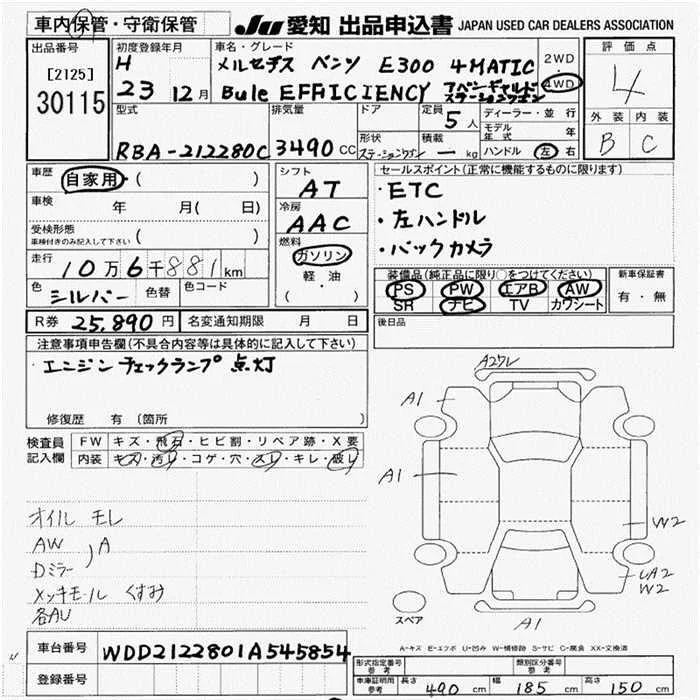 車内保管・守衛保管
JU 愛知 出品申込書 JAPAN USED CAR DEALERS ASSOCIATION
出品番号
[2125]
30115
初度登録年月
H
23 12月
車名・グレード
メルセデス ベンツ E300 4MATIC
Bule EFFICIENCY アバンギャルド
ステーションワゴン
2WD
4WD
評価点
4
外装 内装
B C
型式
RBA-212280C
排気量
3490 CC
ドア
形状
ステーションワゴン
定員
5人
積載
— kg
ディーラー・並行
モデル年式 年
ハンドル 左 右
車歴 自家用 ( )
車検 年 月(日 )
受検形態 ( )
車検付きのみ記入して下さい
走行 10万6千881km
色 シルバー 色替 色コード
シフト
AT
冷房
AAC
燃料
ガソリン
軽・油
( )
セールスポイント(正常に機能するものに限ります)
・ETC
・左ハンドル
・バックカメラ
装備品(純正品に限り○をつけてください)
PS PW エアB AW
SR ナビ TV カワシート
新車保証書
有・無
R券 25,890円 名変通知期限 月 日
後日品
注意事項申告欄(不具合内容等は具体的に記入して下さい)
エンジン チェックランプ 点灯
修復歴 有 〔箇所 〕
検査員
記入欄
FW キズ・飛石・ヒビ割・リペア跡・X要
内装 キズ・汚レ・コゲ・穴・スレ・キレ・破レ
オイル モレ
AW
Dミラー
A
メッキモール くすみ
各AU
A1
A1
W2
W2
A1
スペア
A-キズ E-エクボ U-凹み W-補修跡 S-サビ C-腐食 XX-交換済
車台番号 WDD2122801A545854
登録番号
形式指定番号
参考
類別区分番号
車庫証明用
参考
長さ 490 cm 幅 185 cm 高さ 150 cm